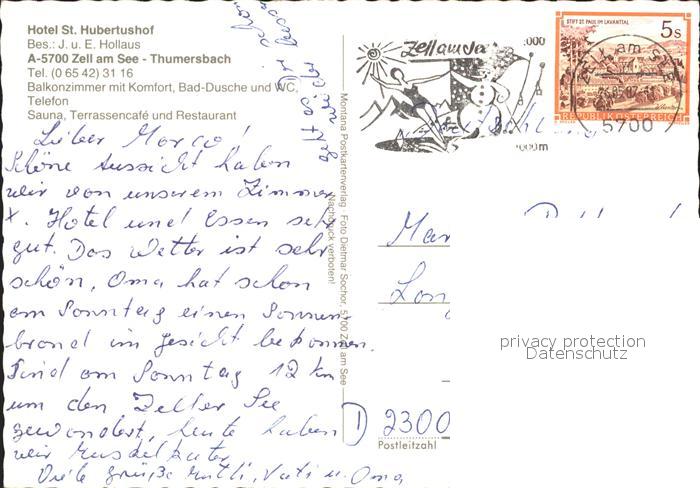 Hotel St. Hubertushof
Bes.: J. u. E. Hollaus
A-5700 Zell am See - Thumersbach
Tel. (0 65 42) 31 16
Balkonzimmer mit Komfort, Bad-Dusche und WC,
Telefon
Sauna, Terrassencafé und Restaurant
Lieber Marco!
Schöne Aussicht haben
wir von unserem Zimmer
x. Hotel und Essen sehr
gut. Das Wetter ist sehr
schön, Oma hat schon
am Sonntag einen Sonnen
brand im gesicht bekommen.
Sind am Sonntag 12 km
um den Zeller See
gewandert, heute haben
wir Muskelkater
Viele grüße Mutti, Vati u. Oma
geht es Dir
wieder
schon
Montana Postkartenverlag Foto Dietmar Sochor, 5700 Zell am See
Nachdruck verboten!
Zell am See
:000
000m
STIFT ST. PAUL IM LAVANTTAL
5s
REPUBLIK ÖSTERREICH
ZELL am SEE
5700
Mar
Lon
D 2300
Postleitzahl
privacy protection
Datenschutz